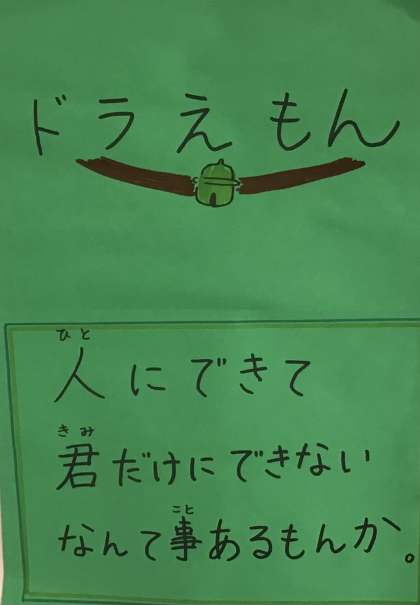 ドラえもん
ひと
人にできて
きみ
君だけにできない
こと
なんて事あるもんか。